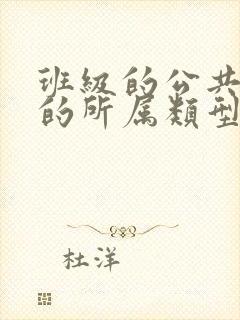 班級的公共
的所属類型
杜洋